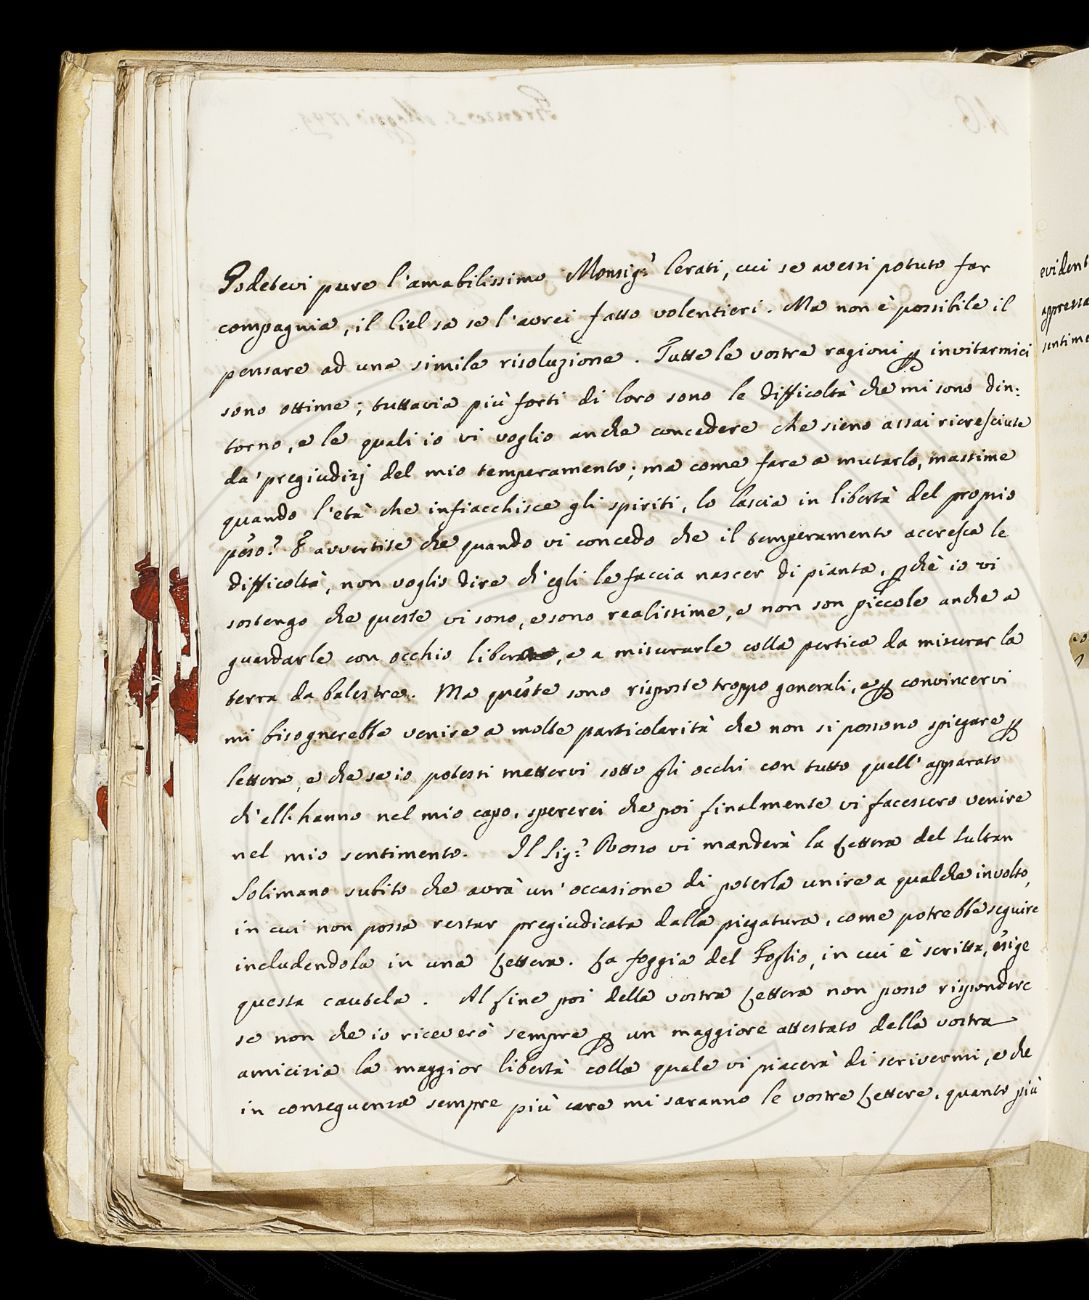 Godetevi pure l'amabilissimo Monsigr Cerati, cui se avessi potuto far
compagnia, il Ciel sa se l'avrei fatto volentieri. Ma non è possibile il
pensare ad una simile risoluzione. Tutte le vostre ragioni p invitarmici
sono ottime; tuttavia più forti di loro sono le difficoltà che mi sono din:
torno, e le quali io vi voglio anche concedere che sieno assai ricresciute
da' pregiudizj del mio temperamento; ma come fare a mutarlo, massime
quando l'età che infiacchisce gli spiriti, lo lascia in libertà del proprio
peso? E avvertite che quando vi concedo che il temperamento accresca le
difficoltà, non voglio dire ch'egli le faccia nascer di pianta, pchè io vi
sostengo che queste vi sono, e sono realissime, e non son piccole anche a
guardarle con occhio libero, e a misurarle colla pertica da misurar la
terra da balestre. Ma queste sono risposte troppo generali, e p convincervi
mi bisognerebbe venire a molte particolarità che non si possono spiegare p
lettera, e che se io potessi mettervi sotto gli occhi con tutto quell'apparato
ch'ell'hanno nel mio capo, spererei che poi finalmente vi facessero venire
nel mio sentimento. Il Sigr Rosso vi manderà la Lettera del Sultan
Solimano subito che avrà un'occasione di poterla unire a qualche involto,
in cui non possa restar pregiudicata dalla piegatura, come potrebbe seguire
includendola in una Lettera. La foggia del Foglio, in cui è scritta, esige
questa cautela. Al fine poi della vostra Lettera non posso rispondere
se non che io riceverò sempre p un maggiore attestato della vostra
amicizia la maggior libertà colla quale vi piacerà di scrivermi, e che
in conseguenza sempre più care mi saranno le vostre Lettere, quanto più
evident
appressa
sentime